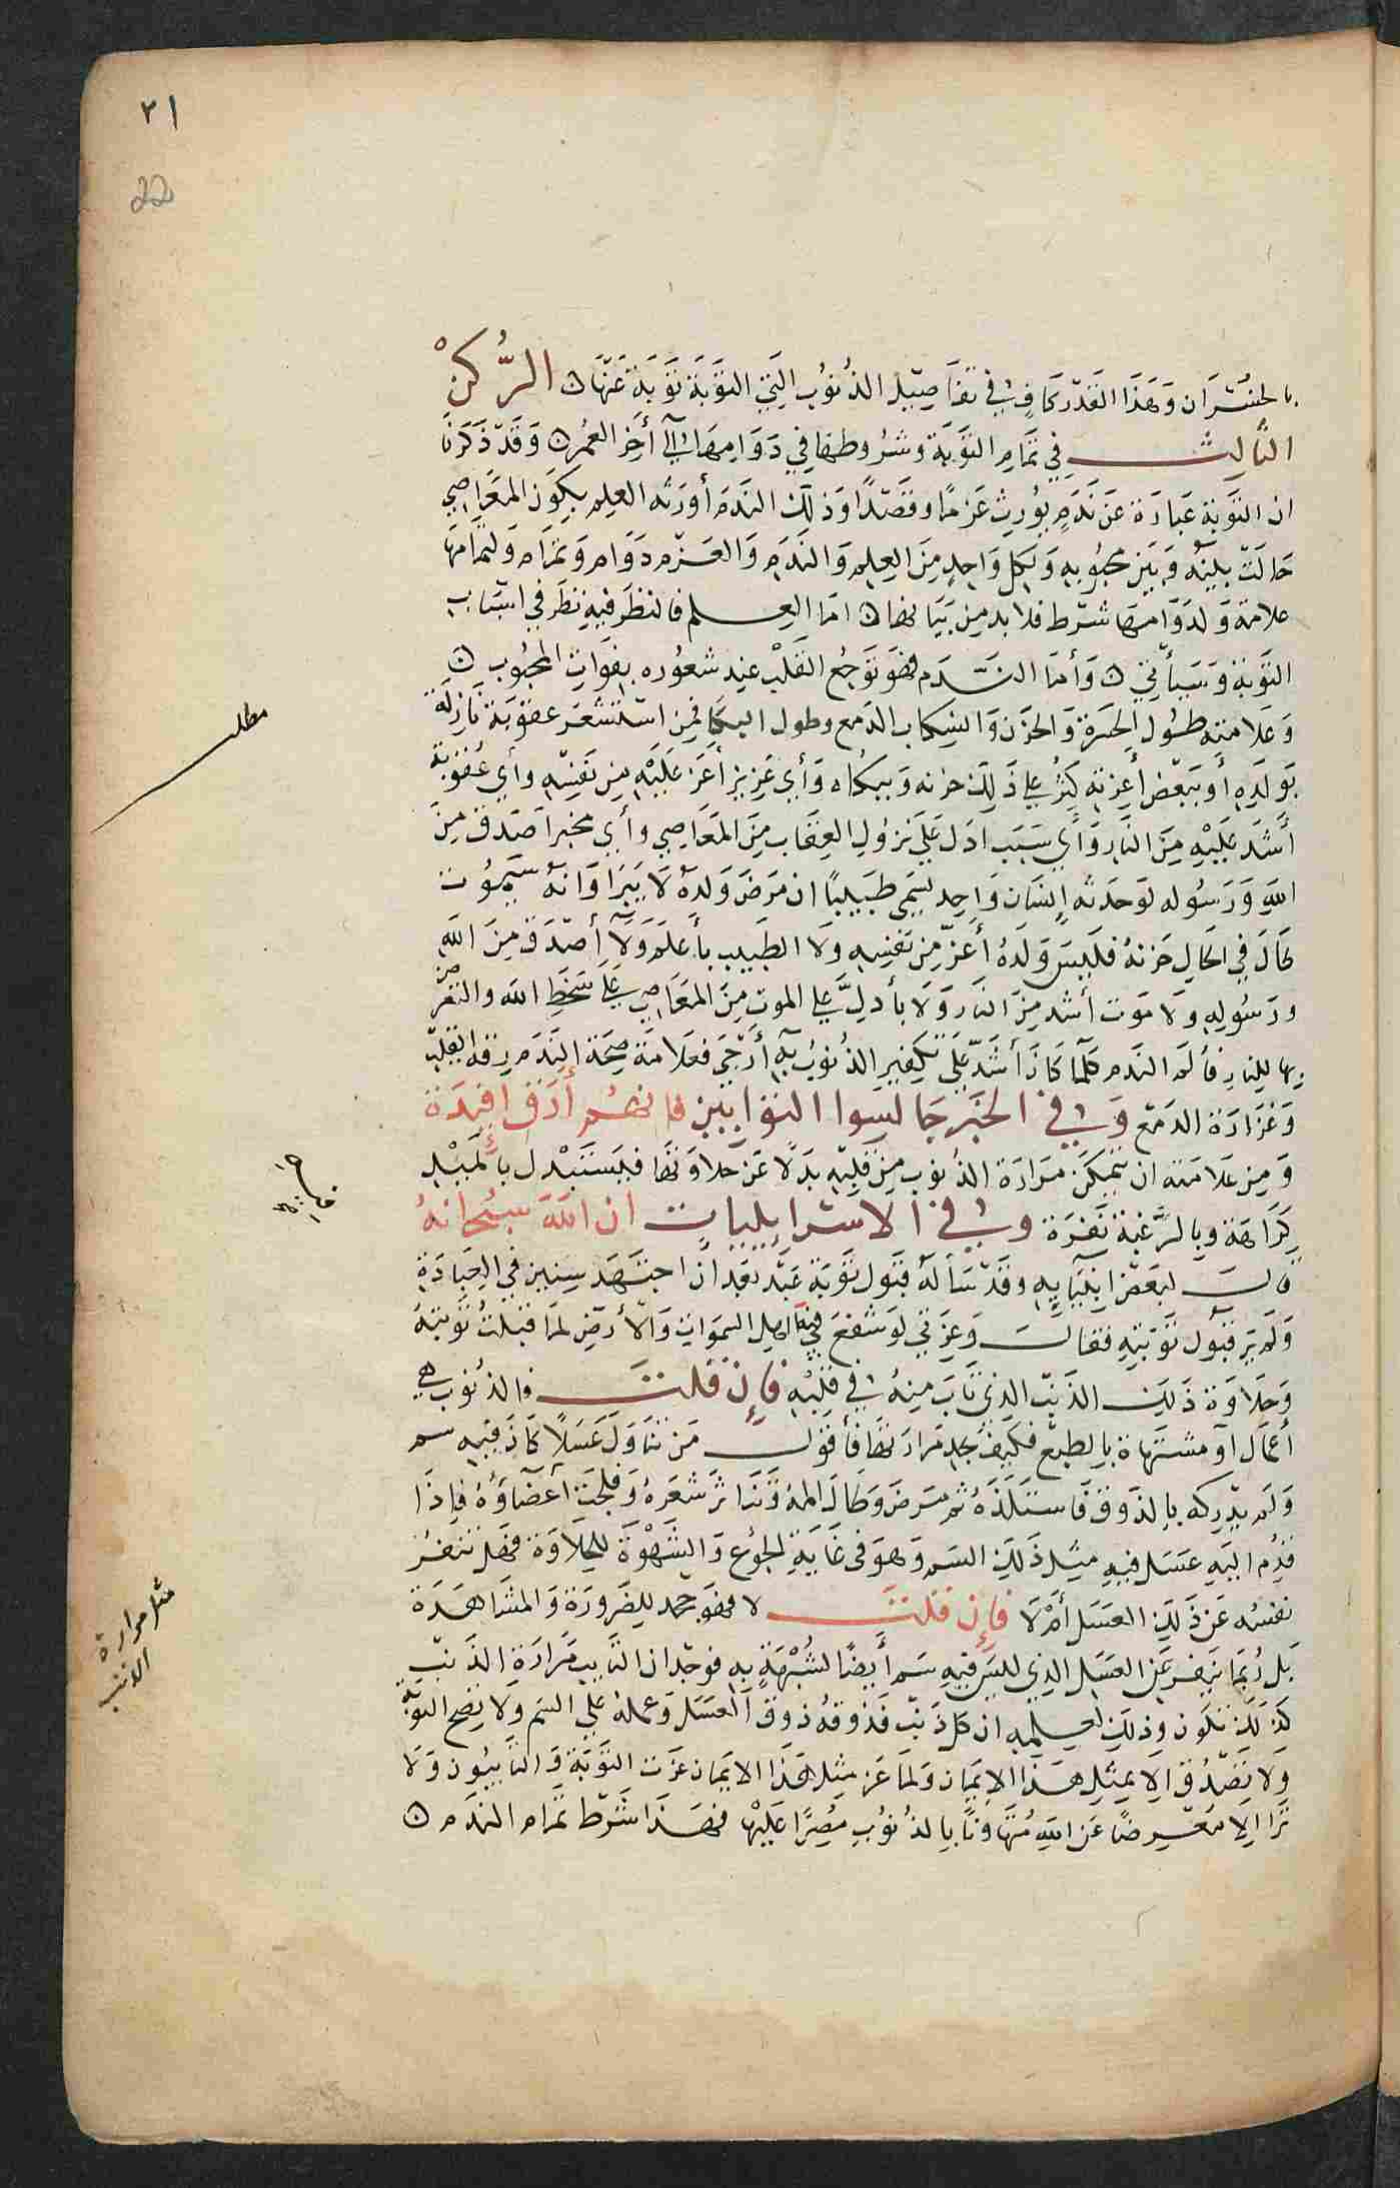 ٢١
22
بالخسران وهذا القدر كاف في تفاصيل الذنوب التي التوبة توبة عنها ن الرُّكنْ
الثالث في تمام التوبة وشروطها في دوامها الى أخر العمر ن وقد ذكرنا
ان التوبة عبارة عن ندم يورث عزما وقصدا وذلك الندم أورثه العلم بكون المعاصي
حالت بينه وبين محبوبه ولكل واحد من العلم والندم والعزم دوام وتمام ولتمامها
علامة ولدوامها شرط فلا بد من بيانها ن اما العلم فالنظر فيه نظر في اسباب
التوبة وسيأتي ن وأما الندم فهو توجع القلب عند شعوره بفوات المحبوب ن
وعلامته طول الحسرة والحزن وانسكاب الدمع وطول البكا فمن استشعر عقوبة نازلة
بولده أو ببعض أعزته كثر على ذلك حزنه وبكاه وأي عزيز أعز عليه من نفسه وأي عقوبة
أشد عليه من النار وأي سبب ادل على نزول العقاب من المعاصي وأي مخبر أصدق من
الله ورسوله لو حدثه إنسان واحد يسمى طبيبا ان مرض ولده لا يبرا وانه سيموت
طال في الحال حزنه فليس ولده أعز من نفسه ولا الطبيب بأعلم ولا أصدق من الله
ورسوله ولا موت أشد من النار ولا بأدل على الموت من المعاصي على سخط الله والتعرض
بها للنار فألم الندم كلما كان أشد على تكفير الذنوب به أرجى فعلامة صحة الندم رقة القلب
وغزارة الدمع وفي الخبر جالسوا التوابين فانهم أرق افئدة
ومن علامته ان تتمكن مرارة الذنوب من قلبه بدلا عن حلاوتها فيستبدل بالميل
كراهة وبالرغبة نفرة وفي الاسرائيليات ان الله سبحانه
قال لبعض انبيايه وقد سأله قبول توبة عبد بعد ان اجتهد سنين في العبادة
ولم ير قبول توبته فقال وعزتي لو شفع فيه اهل السموات والأرض لما قبلت توبته
وحلاوة ذلك الذنب الذي تاب منه في قلبه فإن قلت فالذنوب هي
أعمال مشتهاة بالطبع فكيف يجد مرارتها فأقول من تناول عسلا كان فيه سم
ولم يدركه بالذوق فاستلذه ثم مرض وطال المه وتناثر شعره وفلجت أعضاؤه فإذا
قدم اليه عسل فيه مثل ذلك السم وهو في غاية الجوع والشهوة للحلاوة فهل تنفر
نفسه عن ذلك العسل أم لا فإن قلت لا فهو جحد للضرورة والمشاهدة
بل ربما تنفر عن العسل الذي ليس فيه سم أيضا لشبهه به فوجدان التايب مرارة الذنب
كذلك تكون وذلك لعلمه ان كل ذنب فذوقه ذوق العسل وعمله على السم ولا يصح التوبة
ولا تصدق الا بمثل هذا الايمان ولما عز مثل هذا الايمان عزت التوبة والتايبون ولا
ترا الا معرضا عن الله متهاونا بالذنوب مصرا عليها فهذا شرط تمام الندم ن
مطلب
مثل مرارة
الذنب